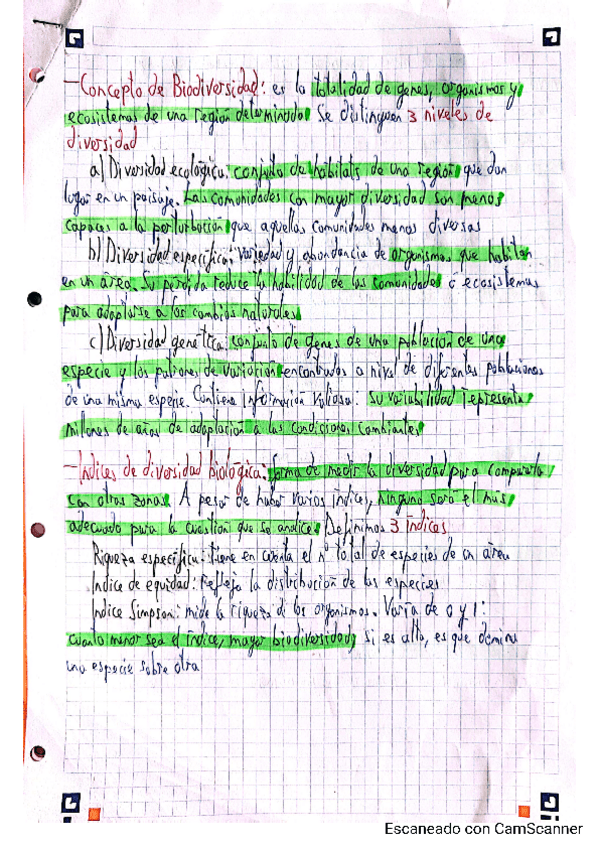 -Concepto de Biodiversidad: es la totalidad de genes, organismos y
ecosistemas de una región determinada. Se distinguen 3 niveles de
diversidad
a) Diversidad ecológica: conjunto de hábitats de una región que dan
lugar en un paisaje. Las comunidades con mayor diversidad son menos
capaces a la perturbación que aquellas comunidades menos diversas
b) Diversidad específica: variedad y abundancia de organismos que habitan
en un área. Su pérdida reduce la habilidad de las comunidades o ecosistemas
para adaptarse a los cambios naturales.
c) Diversidad genética: conjunto de genes de una población de una
especie y los patrones de variación encontrados a nivel de diferentes poblaciones
de una misma especie. Contiene información valiosa. Su variabilidad representa
millones de años de adaptación a las condiciones cambiantes
-Indices de diversidad biológica: forma de medir la diversidad para compararla
con otras zonas. A pesar de haber varios índices, ninguno será el más
adecuado para la cuestión que se analice. Definimos 3 índices
Riqueza específica: tiene en cuenta el nº total de especies de un área
Indice de equidad: refleja la distribución de las especies
Indice Simpson: mide la riqueza de los organismos. Varía de 0 y 1:
cuanto menor sea el índice, mayor biodiversidad, si es alto, es que domina
una especie sobre otra
Escaneado con CamScanner